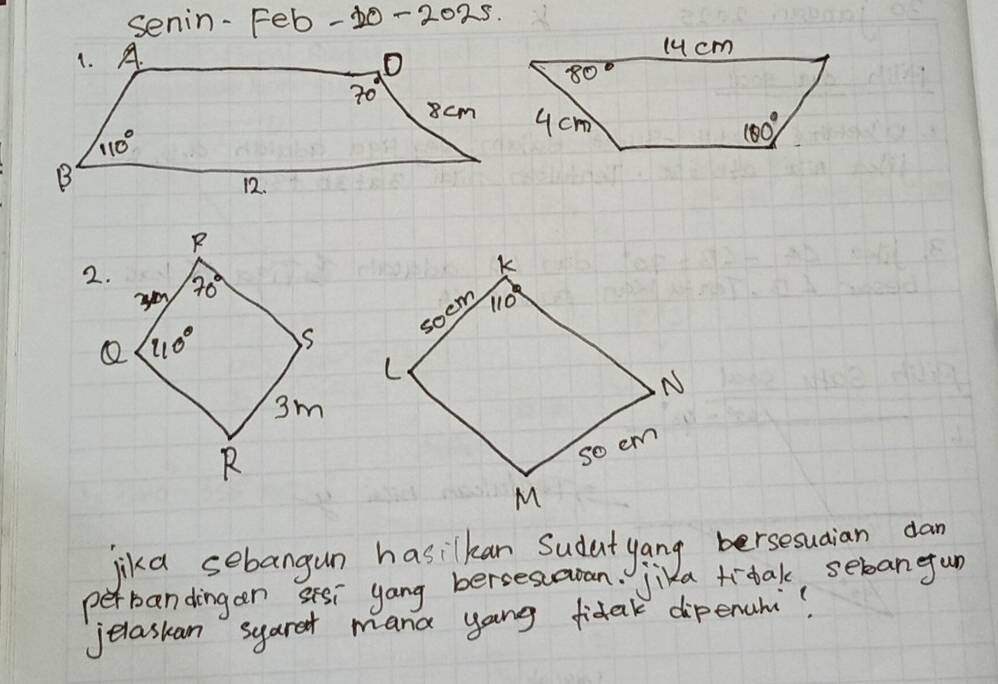 Senin - Feb - 10 - 2025.
1. A D 14 cm
70° 80°
8cm 4 cm
110° 100°
B 12.
2. P K
3m 70° 50 cm 110°
Q 110° S L N
3m 50 cm
R M
jika sebangun hasilkan sudut yang bersesuaian dan
perbandingan sisi yang bersesuaian. jika tidak sebangun
jelaskan syarat mana yang tidak dipenuhi!